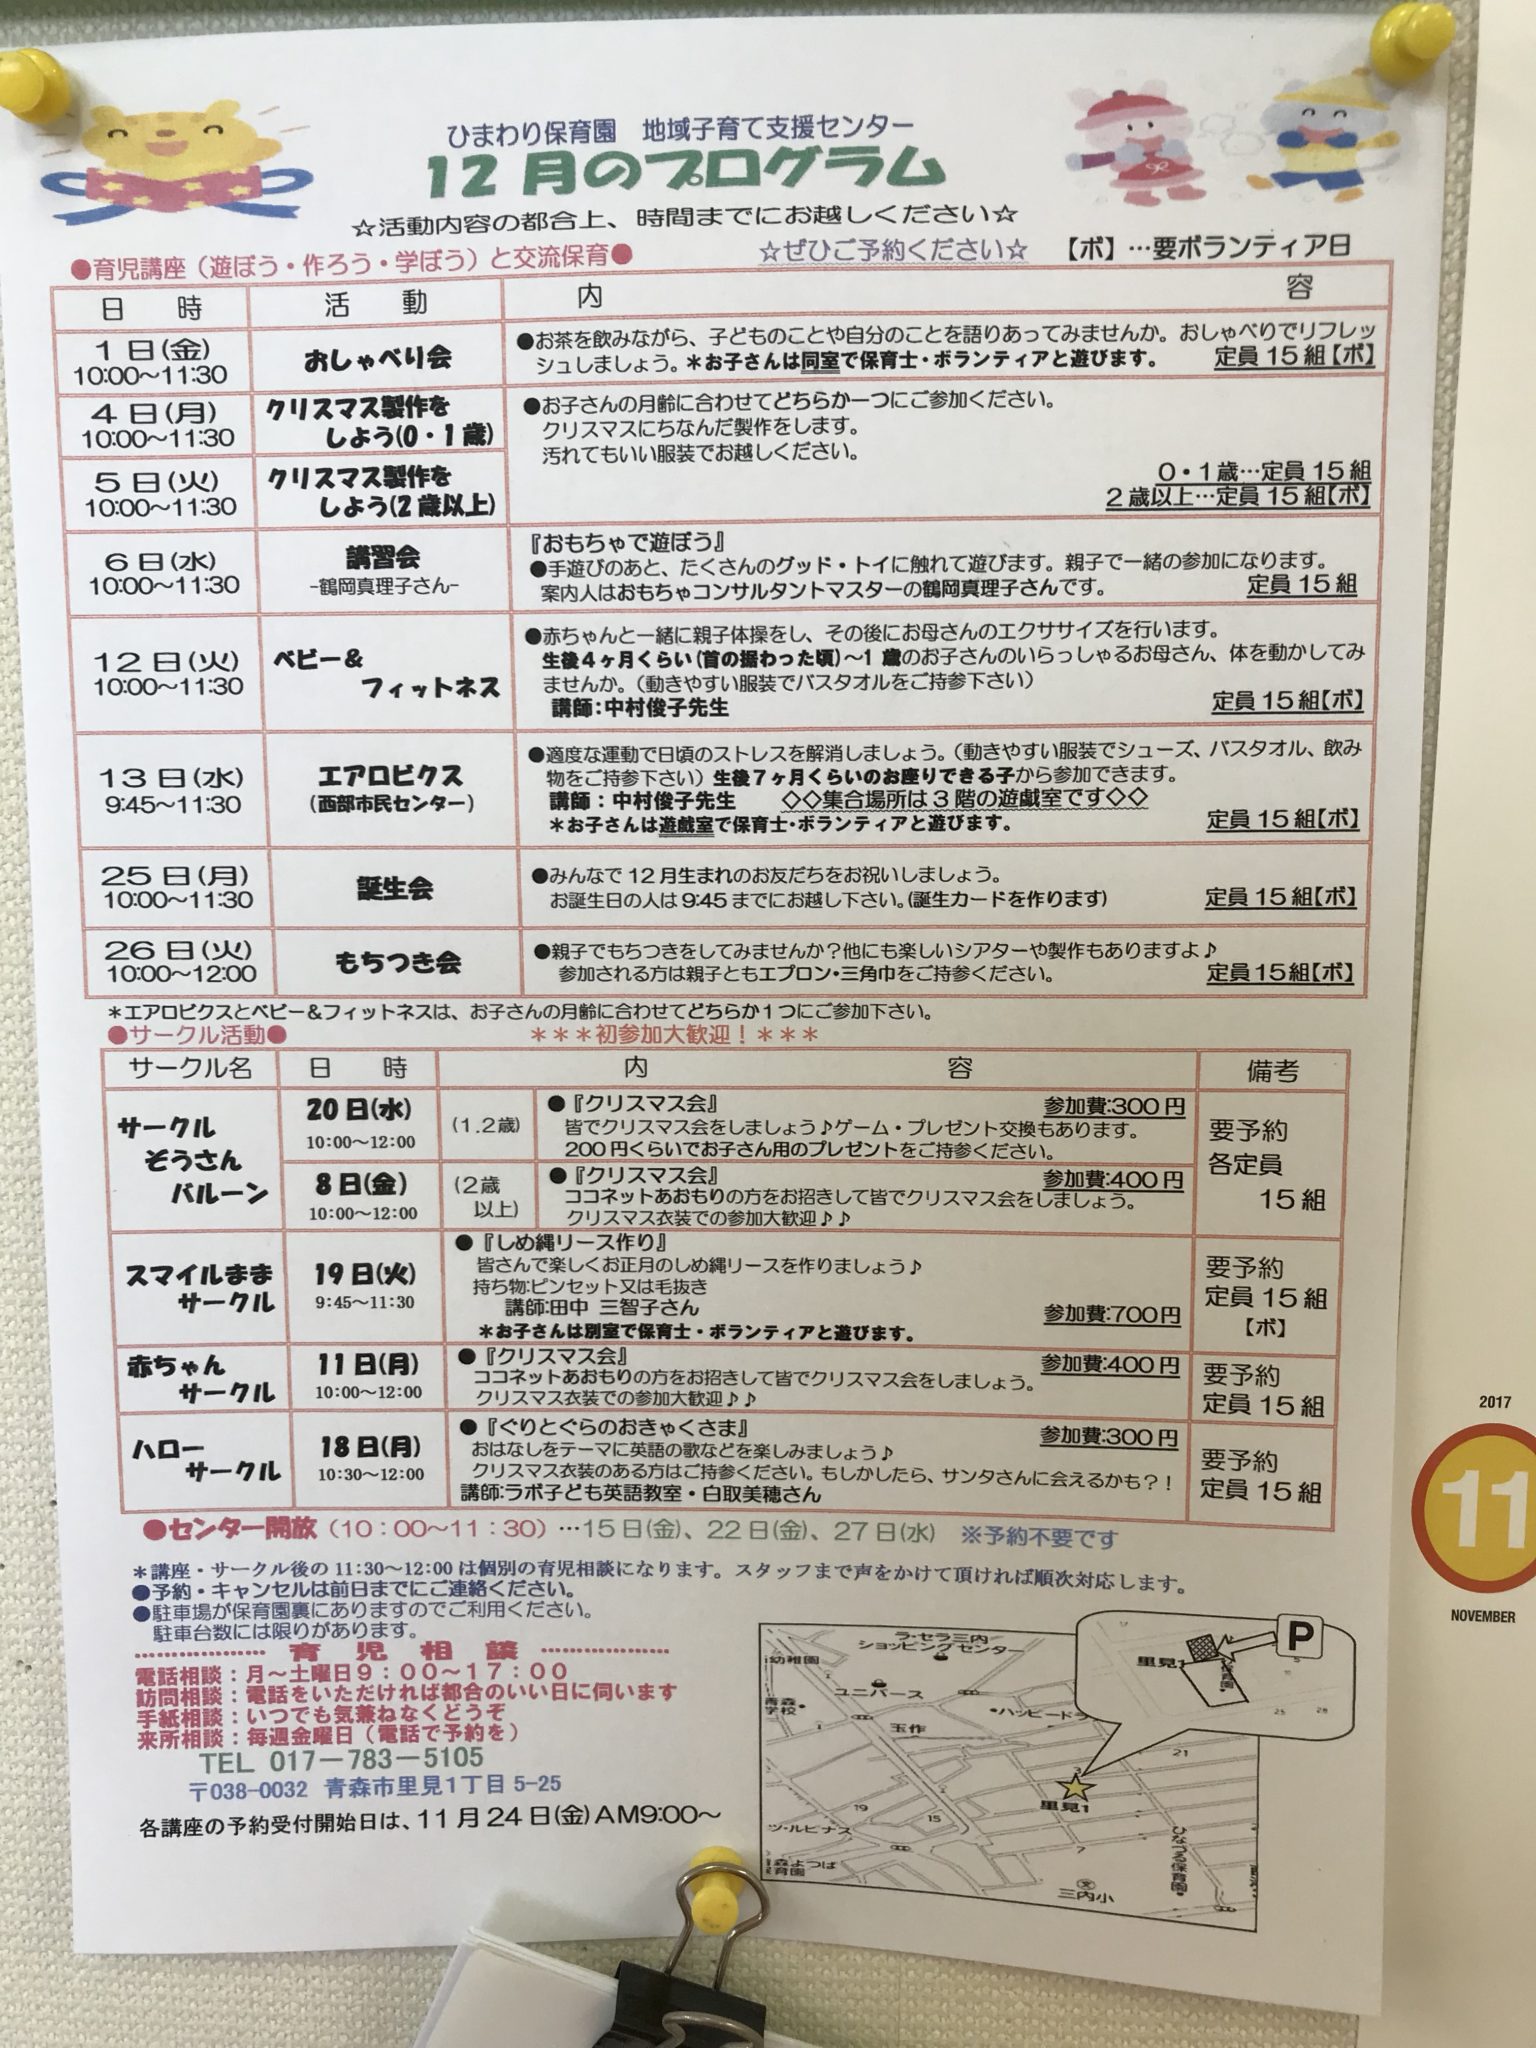 ひまわり保育園　地域子育て支援センター
12月のプログラム
☆活動内容の都合上、時間までにお越しください☆
●育児講座（遊ぼう・作ろう・学ぼう）と交流保育●　☆ぜひご予約ください☆　【ボ】…要ボランティア日
日　時　活　動　内　容
1日(金)
10:00～11:30
おしゃべり会
●お茶を飲みながら、子どものことや自分のことを語りあってみませんか。おしゃべりでリフレッ
シュしましょう。＊お子さんは同室で保育士・ボランティアと遊びます。　定員15組【ボ】
4日(月)
10:00～11:30
クリスマス製作を
しよう(0・1歳)
●お子さんの月齢に合わせてどちらか一つにご参加ください。
クリスマスにちなんだ製作をします。
汚れてもいい服装でお越しください。
0・1歳…定員15組
2歳以上…定員15組【ボ】
5日(火)
10:00～11:30
クリスマス製作を
しよう(2歳以上)
6日(水)
10:00～11:30
講習会
-鶴岡真理子さん-
『おもちゃで遊ぼう』
●手遊びのあと、たくさんのグッド・トイに触れて遊びます。親子で一緒の参加になります。
案内人はおもちゃコンサルタントマスターの鶴岡真理子さんです。　定員15組
12日(火)
10:00～11:30
ベビー＆
フィットネス
●赤ちゃんと一緒に親子体操をし、その後にお母さんのエクササイズを行います。
生後4ヶ月くらい(首の据わった頃)～1歳のお子さんのいらっしゃるお母さん、体を動かしてみ
ませんか。（動きやすい服装でバスタオルをご持参下さい）
講師：中村俊子先生　定員15組【ボ】
13日(水)
9:45～11:30
エアロビクス
（西部市民センター）
●適度な運動で日頃のストレスを解消しましょう。（動きやすい服装でシューズ、バスタオル、飲み
物をご持参下さい）生後7ヶ月くらいのお座りできる子から参加できます。
講師：中村俊子先生　◇◇集合場所は3階の遊戯室です◇◇
＊お子さんは遊戯室で保育士・ボランティアと遊びます。　定員15組【ボ】
25日(月)
10:00～11:30
誕生会
●みんなで12月生まれのお友だちをお祝いしましょう。
お誕生日の人は9:45までにお越し下さい。(誕生カードを作ります)　定員15組【ボ】
26日(火)
10:00～12:00
もちつき会
●親子でもちつきをしてみませんか？他にも楽しいシアターや製作もありますよ♪
参加される方は親子ともエプロン・三角巾をご持参ください。　定員15組【ボ】
＊エアロビクスとベビー＆フィットネスは、お子さんの月齢に合わせてどちらか1つにご参加下さい。
●サークル活動●　＊＊＊初参加大歓迎！＊＊＊
サークル名　日　時　内　容　備考
サークル
ぞうさん
バルーン
20日(水)
10:00～12:00
(1.2歳)
●『クリスマス会』　参加費:300円
皆でクリスマス会をしましょう♪ゲーム・プレゼント交換もあります。
200円くらいでお子さん用のプレゼントをご持参ください。
8日(金)
10:00～12:00
(2歳
以上)
●『クリスマス会』　参加費:400円
ココネットあおもりの方をお招きして皆でクリスマス会をしましょう。
クリスマス衣装での参加大歓迎♪♪
要予約
各定員
15組
スマイルまま
サークル
19日(火)
9:45～11:30
●『しめ縄リース作り』
皆さんで楽しくお正月のしめ縄リースを作りましょう♪
持ち物:ピンセット又は毛抜き
講師:田中 三智子さん　参加費:700円
＊お子さんは別室で保育士・ボランティアと遊びます。
要予約
定員15組
【ボ】
赤ちゃん
サークル
11日(月)
10:00～12:00
●『クリスマス会』　参加費:400円
ココネットあおもりの方をお招きして皆でクリスマス会をしましょう。
クリスマス衣装での参加大歓迎♪♪
要予約
定員15組
ハロー
サークル
18日(月)
10:30～12:00
●『ぐりとぐらのおきゃくさま』　参加費:300円
おはなしをテーマに英語の歌などを楽しみましょう♪
クリスマス衣装のある方はご持参ください。もしかしたら、サンタさんに会えるかも？！
講師:ラボ子ども英語教室・白取美穂さん
要予約
定員15組
●センター開放（10：00～11：30）…15日(金)、22日(金)、27日(水)　※予約不要です
＊講座・サークル後の11:30～12:00は個別の育児相談になります。スタッフまで声をかけて頂ければ順次対応します。
●予約・キャンセルは前日までにご連絡ください。
●駐車場が保育園裏にありますのでご利用ください。
駐車台数には限りがあります。
育 児 相 談
電話相談：月～土曜日9：00～17：00
訪問相談：電話をいただければ都合のいい日に伺います
手紙相談：いつでも気兼ねなくどうぞ
来所相談：毎週金曜日（電話で予約を）
TEL 017－783－5105
〒038-0032 青森市里見1丁目5-25
各講座の予約受付開始日は、11月24日(金)AM9:00～
ラ・セラ三内
ショッピングセンター
幼稚園
ユニバース
青森
学校
玉作
ハッピードラ
里見1
P
保育園
5
25
28
21
里見1
19
15
7
ツ・ルピナス
森よつば
育園
ひなづる保育園
三内小
2017
11
NOVEMBER